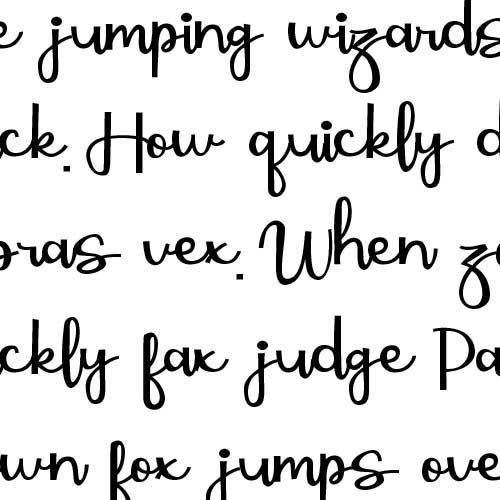 e jumping wizards
ck. How quickly d
bras vex. When z
ckly fax judge Pa
own fox jumps ove